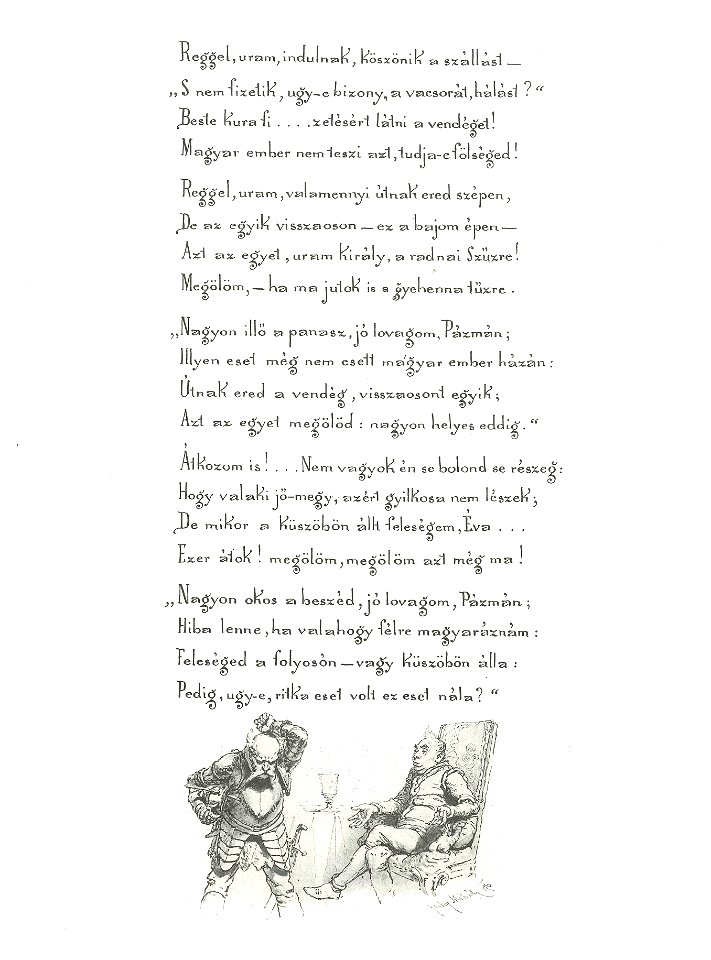 Reggel, uram, indulnak, köszönik a szállást —
„S nem fizetik, ugy-e bizony, a vacsorát, hálást?“
Beste kura fi . . . . zetésért látni a vendéget!
Magyar ember nem teszi azt, tudja-e fölséged!
Reggel, uram, valamennyi útnak ered szépen,
De az egyik visszaoson — ez a bajom épen —
Azt az egyet, uram király, a radnai Szűzre!
Megölöm, — ha ma jutok is a gyehenna tüzre.
„Nagyon illő a panasz, jó lovagom, Pázmán;
Illyen eset még nem esett magyar ember házán:
Útnak ered a vendég, visszaosont egyik;
Azt az egyet megölöd: nagyon helyes eddig.“
Átkozom is! . . . Nem vagyok én se bolond se részeg:
Hogy valaki jő-megy, azért gyilkosa nem lészek;
De mikor a küszöbön állt feleségem, Éva . . .
Ezer átok! megölöm, megölöm azt még ma!
„Nagyon okos a beszéd, jó lovagom, Pázmán;
Hiba lenne, ha valahogy félre magyaráznám:
Feleséged a folyosón — vagy küszöbön álla:
Pedig, ugy-e, ritka eset volt ez eset nála?“